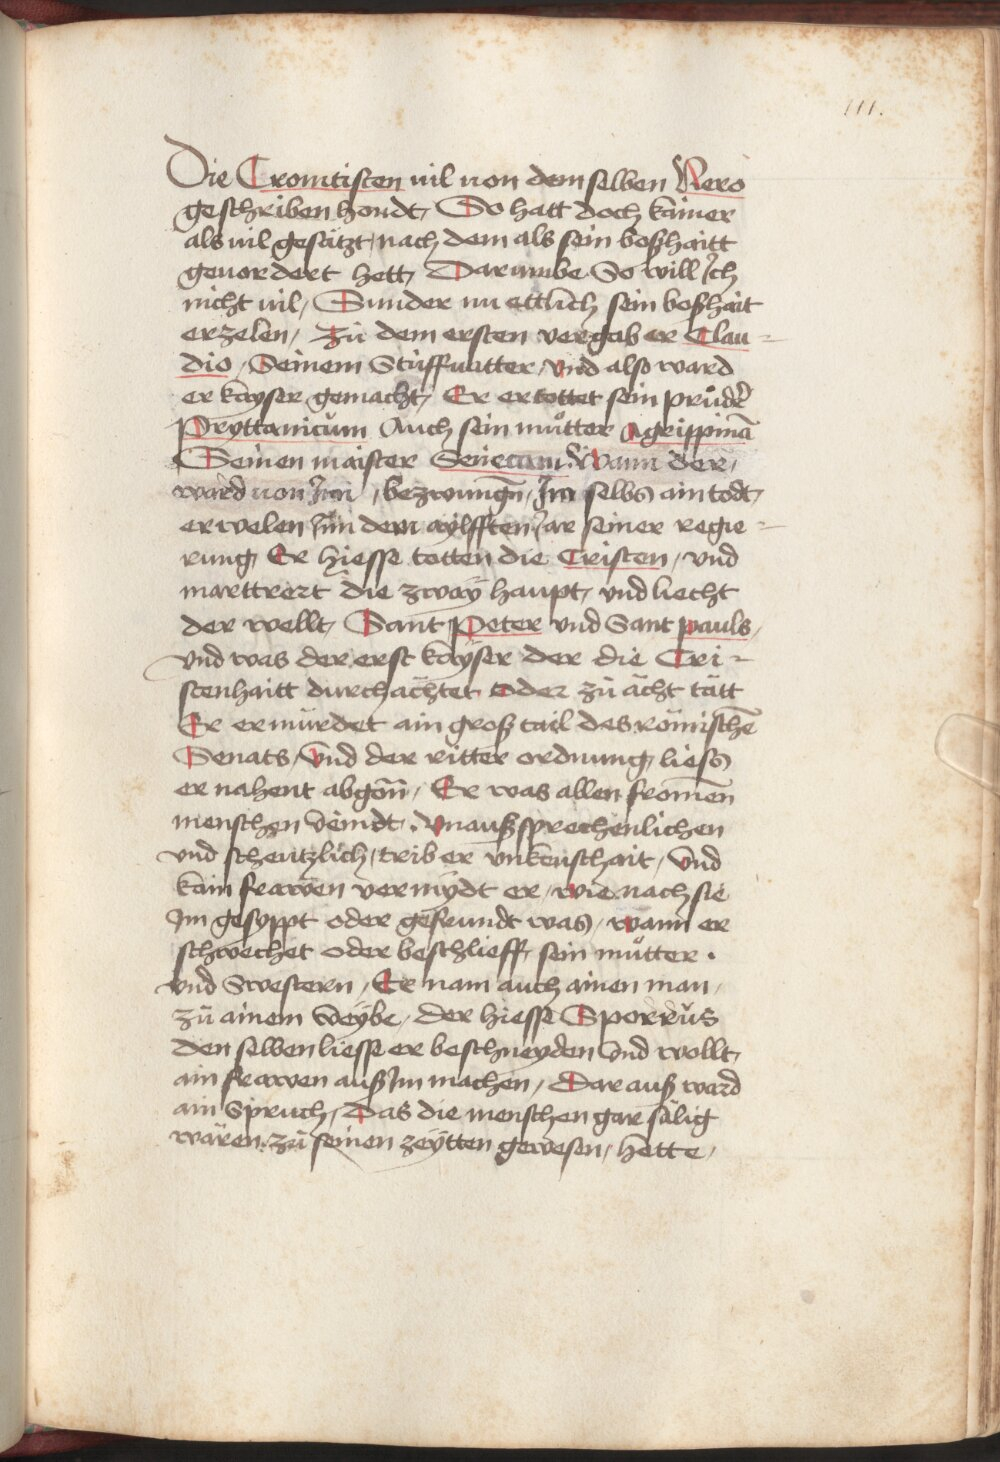 111.
Die Cronitisten uil uon dem selben Nero
geschriben hondt, So hatt doch kainer
als uil gesätzt, nach dem als sein boßhaitt
geuordert hett, Darumbe So will Ich
nicht uil, Sunder nu ettlich sein boßhait
erzelen, Zü dem ersten vergab er Clau-
dio, Seinem Stüffuatter, vnd also ward
er kayser gemacht, Er ertottet sein průdr̃
Pryttanicüm Auch sein můtter Agrippinā
Seinen maister Senecam. Wann der,
ward uon Im, bezwungn̄, Im selbs ain todt,
erwelen Inn dem aylfften Jar seiner regie-
rung, Er hiesse totten die Cristen, vnd
marttrert die zway haupt, vnd liecht
der wellt, Sant Peter vnd Sant pauls,
vnd was der erst kayser der die Cri-
stenhaitt durchächtet oder zü ächt tätt
Er ermürdet ain groß tail des römischē
Senats, Vnd der ritter ordnung, liess
er nahent abgōn, Er was allen fromēn
menschen veindt. Vnaußsprechenlichen
vnd scheutzlich, trib er vnkeuschait, Vnd
kain frawen vermydt er, wie nach sie
Im gesyppt oder gefreundt was, wann er
schwechet oder beschlieff, sein můtter.
vnd Swestern, Er nam auch ainen man,
zü ainem weybe, der hiesse Sporrüs
den selben liesse er beschneyden Vnd wollt,
ain frawen auß Im machen, Dar auß ward
ain Spruch, Das die menschen gar sälig
wären, zü seinen zeytten gewesen, hette,